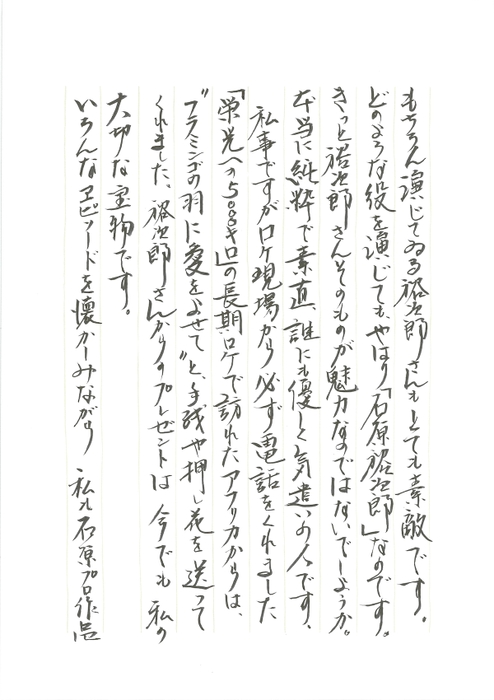 もちろん演じてゐる裕次郎さんもとても素敵です。
どのような役を演じても、やはり「石原裕次郎」なのです。
きっと裕次郎さんそのものが魅力なのではないでしょうか。
本当に純粋で素直、誰にも優しく気遣いの人です。
私事ですがロケ現場から必ず電話をくれました
「栄光への5000キロ」の長期ロケで訪れたアフリカからは、
“フラミンゴの羽に愛をよせて”と、手残や押し花を送って
くれました、裕次郎さんからのプレゼントは 今でも 私の
大切な宝物です。
いろんなエピソードを懐かしみながら 私も石原プロ作品